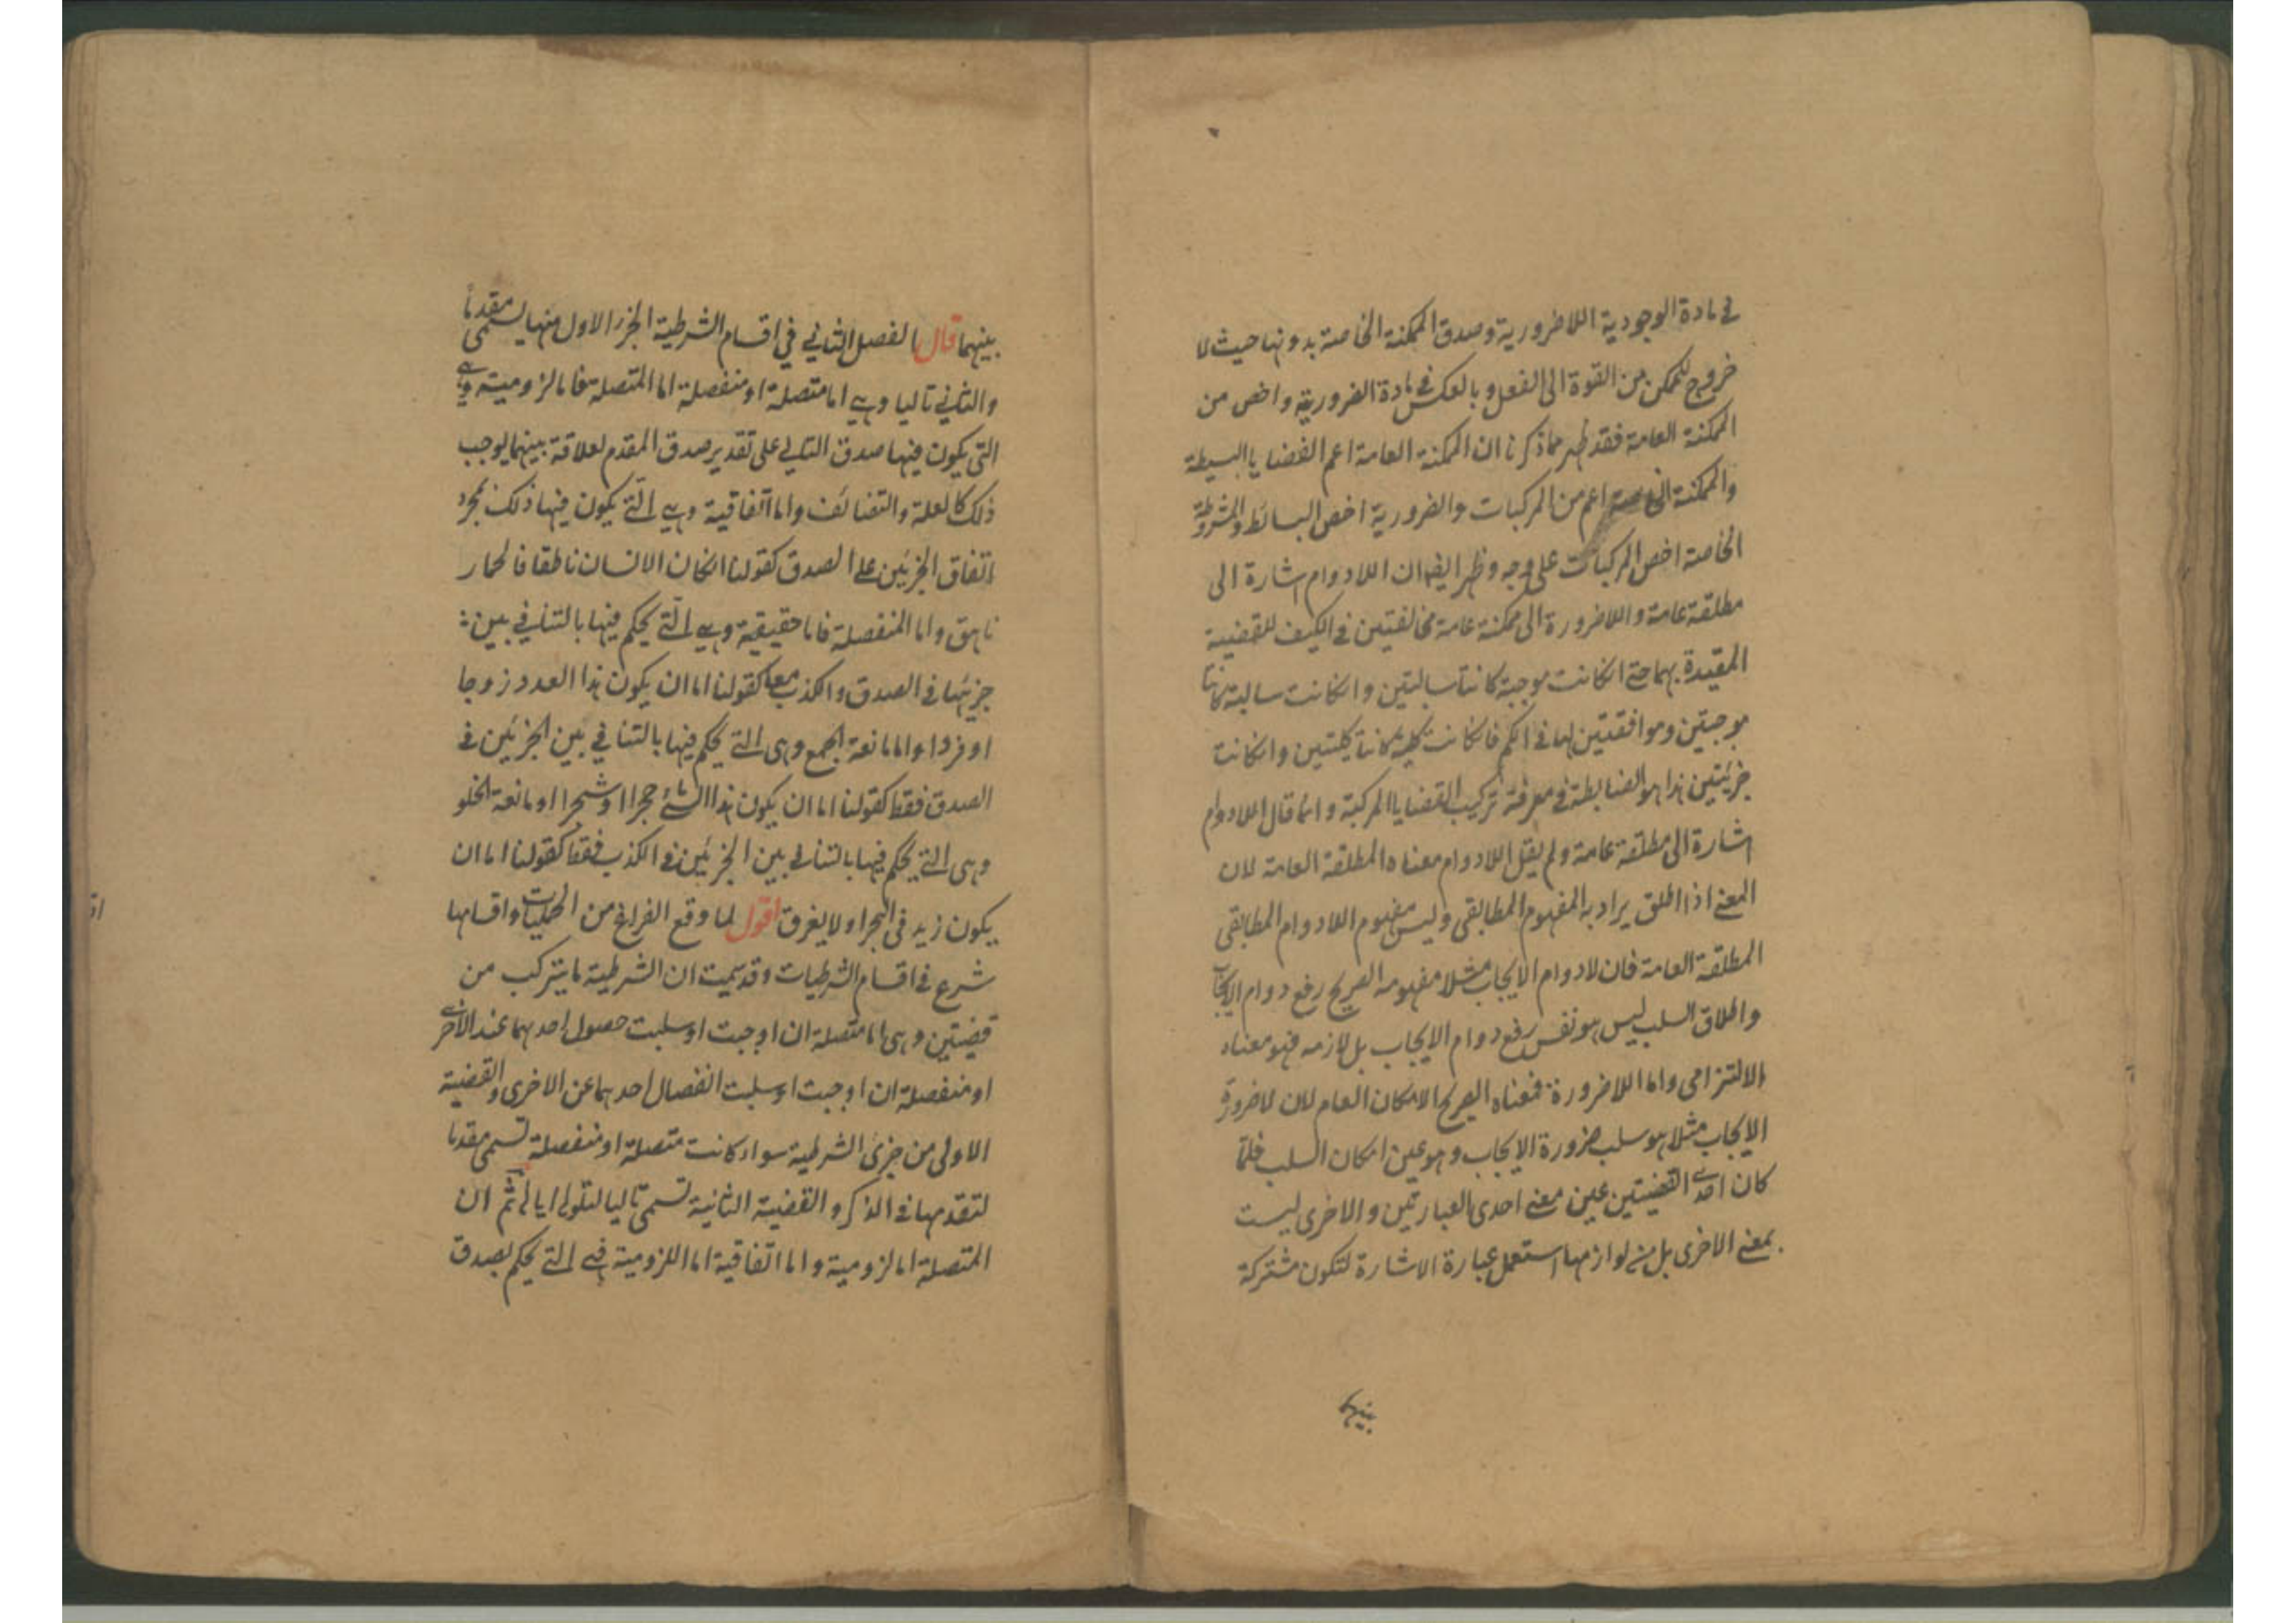 في مادة الوجودية اللاضرورية وصدق الممكنة الخاصة بدونها حيث لا
خروج للممكن من القوة الى الفعل وبالعكس في مادة الضرورية واخص من
الممكنة العامة فقد ظهر مما ذكرنا ان الممكنة العامة اعم القضايا البسيطة
والممكنة الخاصة اعم من المركبات والضرورية اخص البسائط والمشروطة
الخاصة اخص المركبات على وجه وظهر ايضا ان اللادوام اشارة الى
مطلقة عامة واللاضرورة الى ممكنة عامة مخالفتين في الكيف للقضية
المقيدة بهما حتى انكانت موجبة كانتا سالبتين وانكانت سالبة كانتا
موجبتين وموافقتين لها في الكم فانكانت كلية كانتا كليتين وانكانت
جزئيتين هذا هو الضابطة في معرفة تركيب القضايا المركبة وانما قال اللادوام
اشارة الى مطلقة عامة ولم يقل اللادوام معناه المطلقة العامة لان
المعنى اذا اطلق يراد به المفهوم المطابقى وليس مفهوم اللادوام المطابقى
المطلقة العامة فان لادوام الايجاب مثلا مفهومه الصريح رفع دوام الايجاب
واطلاق السلب ليس هو نفس رفع دوام الايجاب بل لازمه فهو معناه
الالتزامى واما اللاضرورة فمعناه الصريح الامكان العام لان لاضرورة
الايجاب مثلا هو سلب ضرورة الايجاب وهو عين امكان السلب فلما
كان احدى القضيتين عين معنى احدى العبارتين والاخرى ليست
بمعنى الاخرى بل من لوازمها استعمل عبارة الاشارة لتكون مشتركة
بينهما
بينهما قال الفصل الثاني في اقسام الشرطية الجزء الاول منها يسمى مقدما
والثاني تاليا وهي اما متصلة او منفصلة اما المتصلة فاما لزومية وهي
التى يكون فيها صدق التالي على تقدير صدق المقدم لعلاقة بينهما يوجب
ذلك كالعلة والتضائف واما اتفاقية وهي التي يكون فيها ذلك بمجرد
اتفاق الجزئين على الصدق كقولنا انكان الانسان ناطقا فالحمار
ناهق واما المنفصلة فاما حقيقية وهي التي يحكم فيها بالتنافي بين
جزئيها في الصدق والكذب معا كقولنا اما ان يكون هذا العدد زوجا
او فردا واما مانعة الجمع وهى التي يحكم فيها بالتنافي بين الجزئين في
الصدق فقط كقولنا اما ان يكون هذا الشئ حجرا او شجرا او مانعة الخلو
وهى التي يحكم فيها بالتنافي بين الجزئين في الكذب فقط كقولنا اما ان
يكون زيد في البحر او لا يغرق اقول لما وقع الفراغ من الحمليات واقسامها
شرع في اقسام الشرطيات وقد سمعت ان الشرطية ما يتركب من
قضيتين وهى اما متصلة ان اوجبت او سلبت حصول احدهما عند الاخرى
او منفصلة ان اوجبت او سلبت انفصال احدهما عن الاخرى والقضية
الاولى من جزئ الشرطية سواء كانت متصلة او منفصلة تسمى مقدما
لتقدمها في الذكر والقضية الثانية تسمى تاليا لتلوها اياه ثم ان
المتصلة اما لزومية واما اتفاقية اما اللزومية فهي التي يحكم بصدق